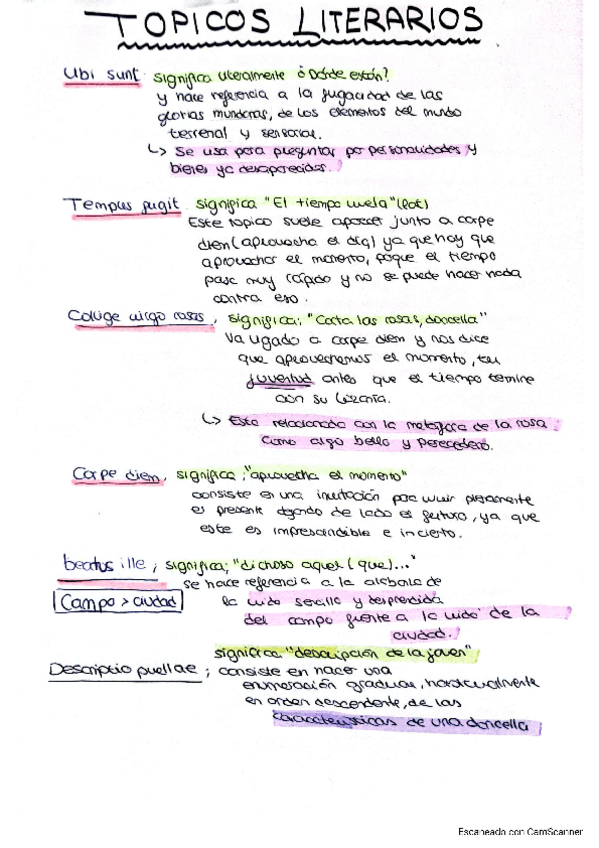 TOPICOS LITERARIOS
Ubi sunt significa literalmente ¿Dónde están?
y hace referencia a la fugacidad de las
glorias mundanas, de los elementos del mundo
terrenal y sensorial.
↳ Se usa para preguntar por personalidades y
bienes ya desaparecidos.
Tempus fugit significa "El tiempo vuela" (lat)
Este topico suele aparecer junto a carpe
diem (aprovecha el día) ya que hay que
aprovechar el momento, porque el tiempo
pasa muy rápido y no se puede hacer nada
contra eso.
Collige virgo rosas, significa: "Corta las rosas, doncella"
Va ligado a carpe diem y nos dice
que aprovechemos el momento, tu
juventud antes que el tiempo termine
con su lozanía.
↳ Esta relacionado con la metafora de la rosa
como algo bello y perecedero.
Carpe diem, significa; "aprovecha el momento"
consiste en una invitación para vivir plenamente
el presente dejando de lado el futuro, ya que
este es imprescindible e incierto.
beatus ille; significa; "dichoso aquel (que)..."
se hace referencia a la alabanza de
Campo > ciudad
la vida sencilla y desprendida
del campo frente a la vida de la
ciudad.
significa "descripción de la joven"
Descriptio puellae; consiste en hacer una
enumeración gradual, habitualmente
en orden descendente, de las
características de una doncella
Escaneado con CamScanner